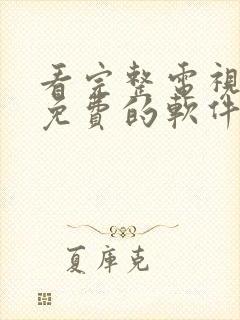 看完整電視
免費的軟件
夏庫克